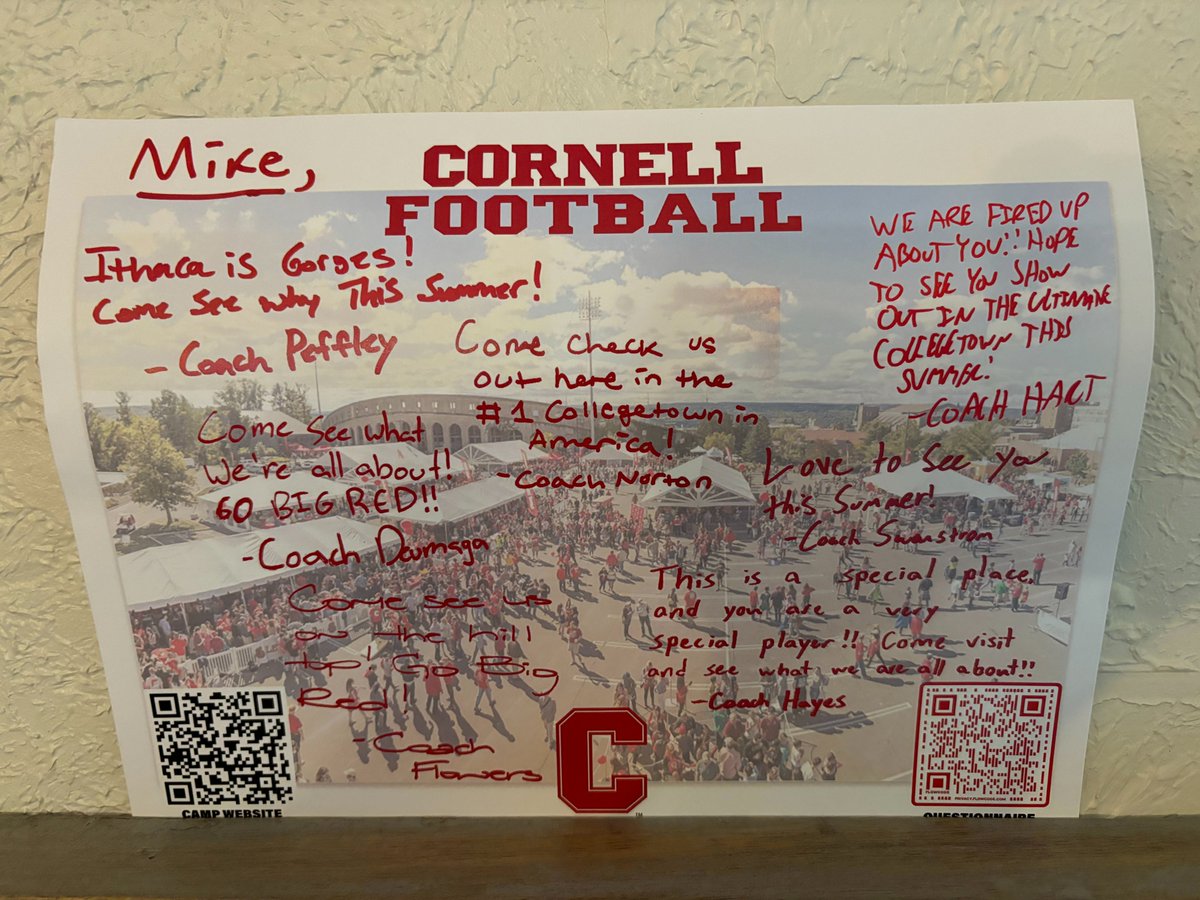 Mike,
CORNELL
FOOTBALL
Ithaca is Gorges!
Come See why This Summer!
- Coach Peffley
WE ARE FIRED UP
ABOUT YOU!! HOPE
TO SEE YOU SHOW
OUT IN THE ULTIMATE
COLLEGETOWN THIS
SUMMER!
- COACH HART
Come check us
out here in the
#1 Collegetown in
America!
- Coach Norton
Come See what
We're all about!
GO BIG RED!!
- Coach Daumaga
Love to See you
this Summer!
- Coach Swanstrom
Come see us
on the hill
top! Go Big
Red!
- Coach
Flowers
This is a special place,
and you are a very
special player!! Come visit
and see what we are all about!!
- Coach Hayes
C
TM
CAMP WEBSITE
FLOWCODE
PRIVACY.FLOWCODE.COM
QUESTIONNAIRE